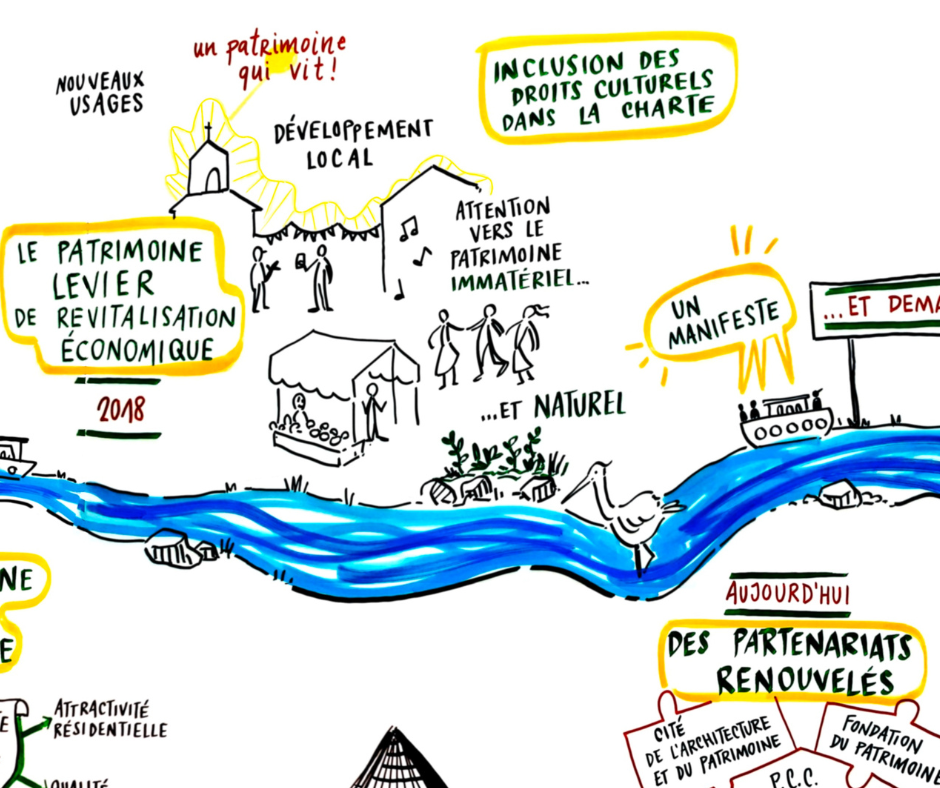 un patrimoine
qui vit!
NOUVEAUX
USAGES
DÉVELOPPEMENT
LOCAL
INCLUSION DES
DROITS CULTURELS
DANS LA CHARTE
LE PATRIMOINE
LEVIER
DE REVITALISATION
ÉCONOMIQUE
2018
ATTENTION
VERS LE
PATRIMOINE
IMMATÉRIEL...
...ET NATUREL
UN
MANIFESTE
...ET DEMA
NE
E
ATTRACTIVITÉ
RÉSIDENTIELLE
QUALITÉ
AUJOURD'HUI
DES PARTENARIATS
RENOUVELÉS
CITÉ
DE L'ARCHITECTURE
ET DU PATRIMOINE
FONDATION
DU PATRIMOINE
P.C.C.